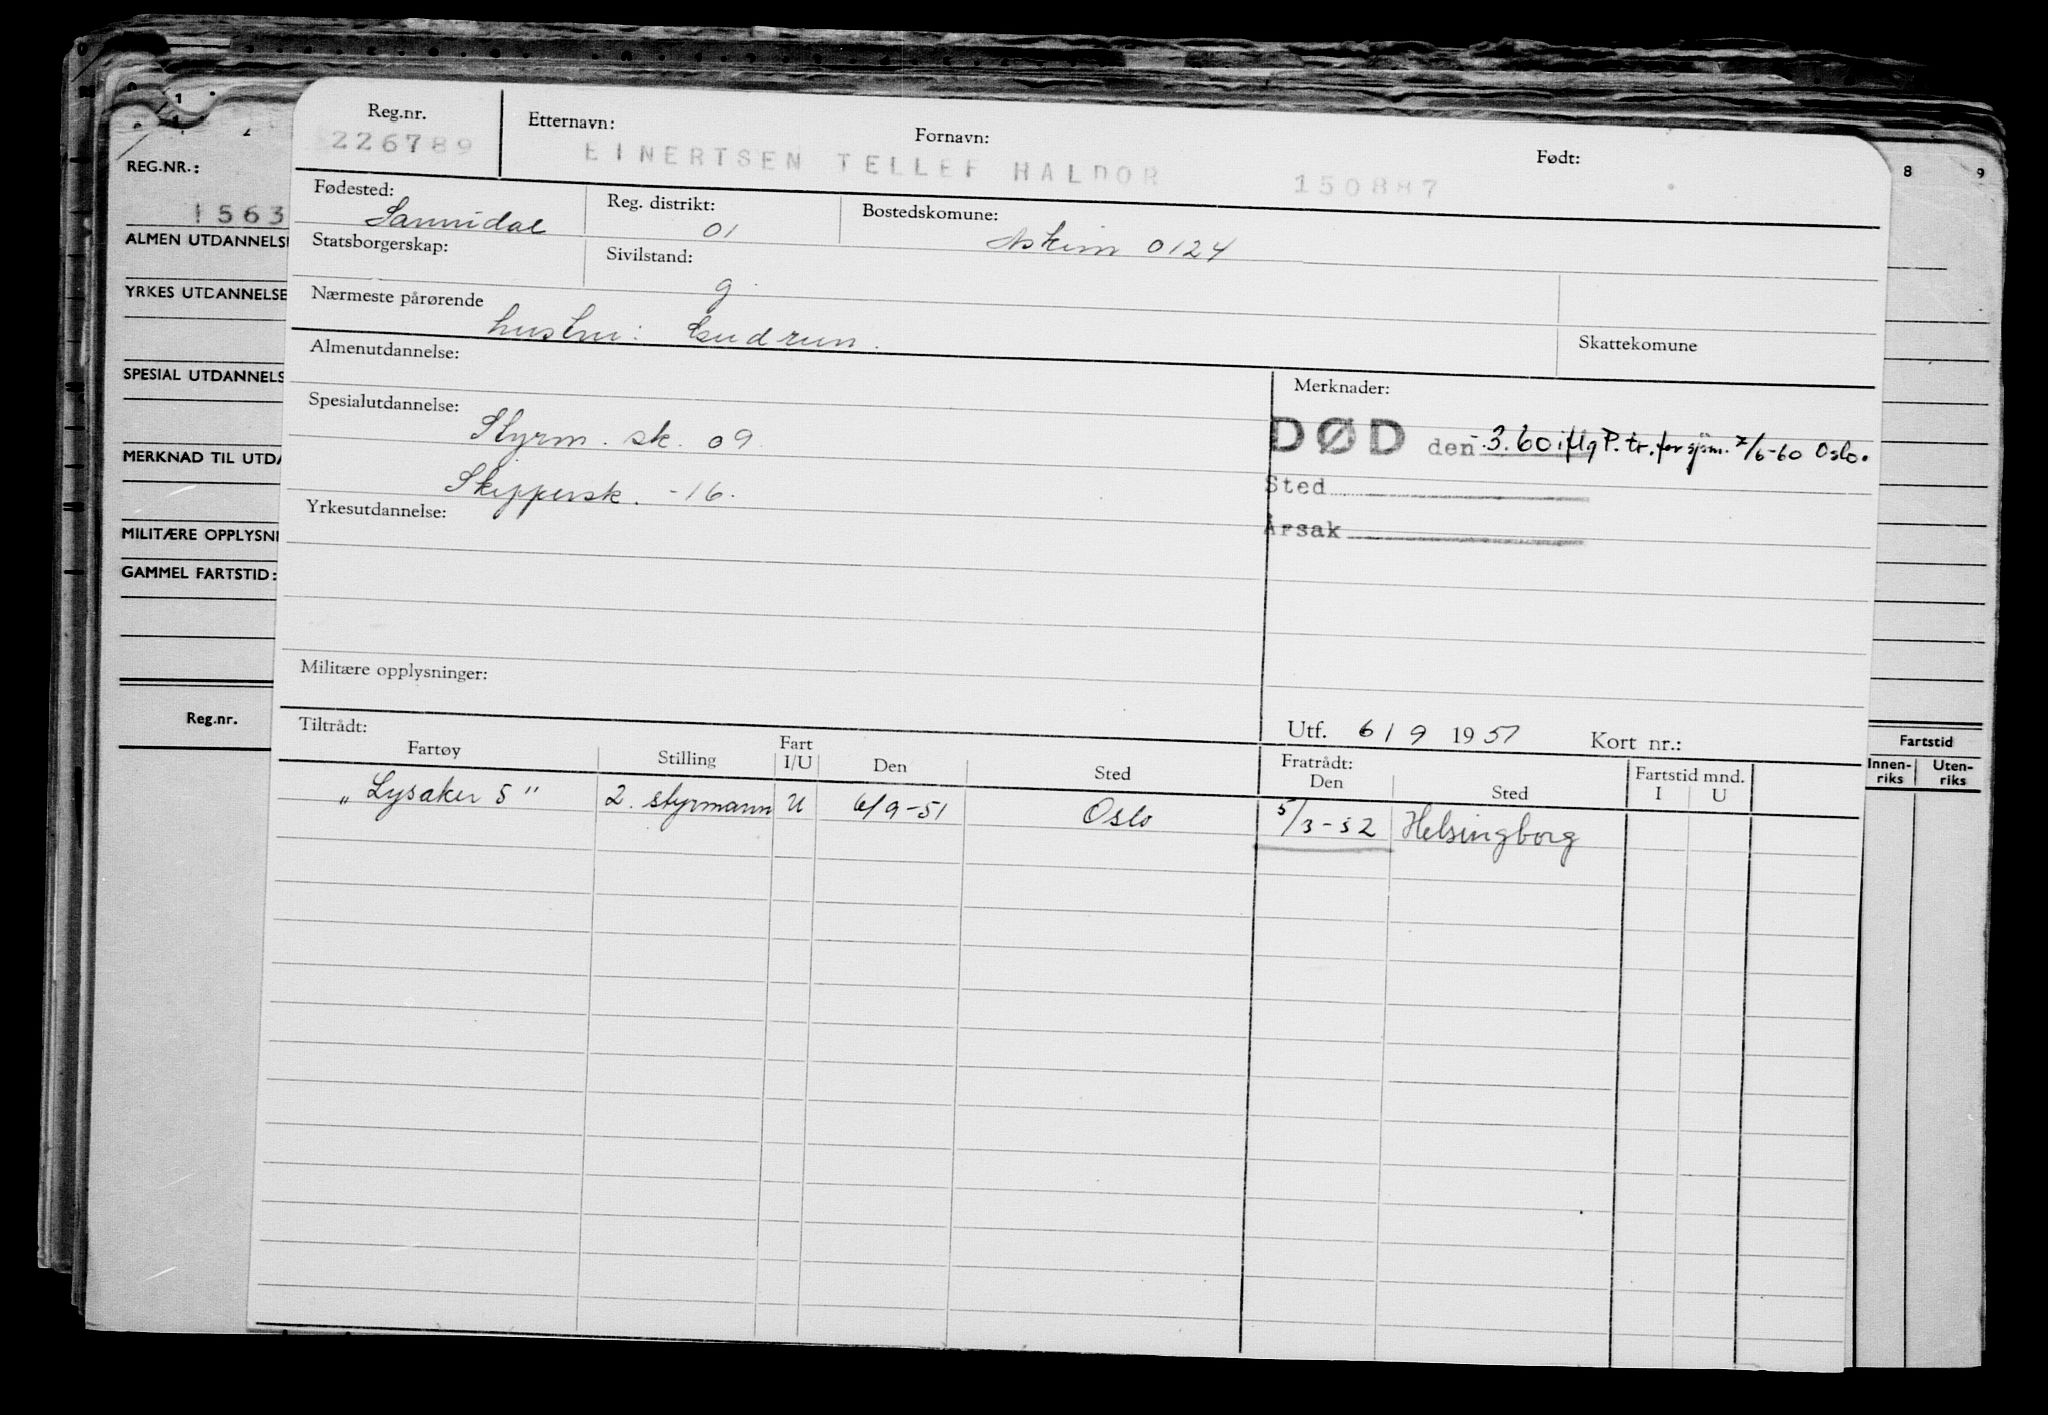 Reg.nr. Etternavn: Fornavn: Født:
226789 EINERTSEN TELLEF HALDOR 150887
Fødested: Reg. distrikt: Bostedskomune:
Sannidal 01 Askim 0124
Statsborgerskap: Sivilstand:
g.
Nærmeste pårørende
hustru: Gudrun.
Skattekomune
Almenutdannelse:
Merknader:
Spesialutdannelse:
Styrm. sk. 09.
DØD den -.3.60 iflg P.tr. for sjøm. 7/6-60 Oslo.
Skippersk. -16.
Sted
Yrkesutdannelse:
Årsak
Militære opplysninger:
Tiltrådt:
Utf. 6/9 1951 Kort nr.:
Fartøy Stilling Fart I/U Den Sted Fratrådt: Den Sted Fartstid mnd. I U
"Lysaker 5" 2. styrmann U 6/9-51 Oslo 5/3-52 Helsingborg
REG.NR.:
1563
ALMEN UTDANNELS
YRKES UTDANNELSE
SPESIAL UTDANNELS
MERKNAD TIL UTDA
MILITÆRE OPPLYSNI
GAMMEL FARTSTID:
Reg.nr.
8 9
Fartstid
Innen-riks Uten-riks